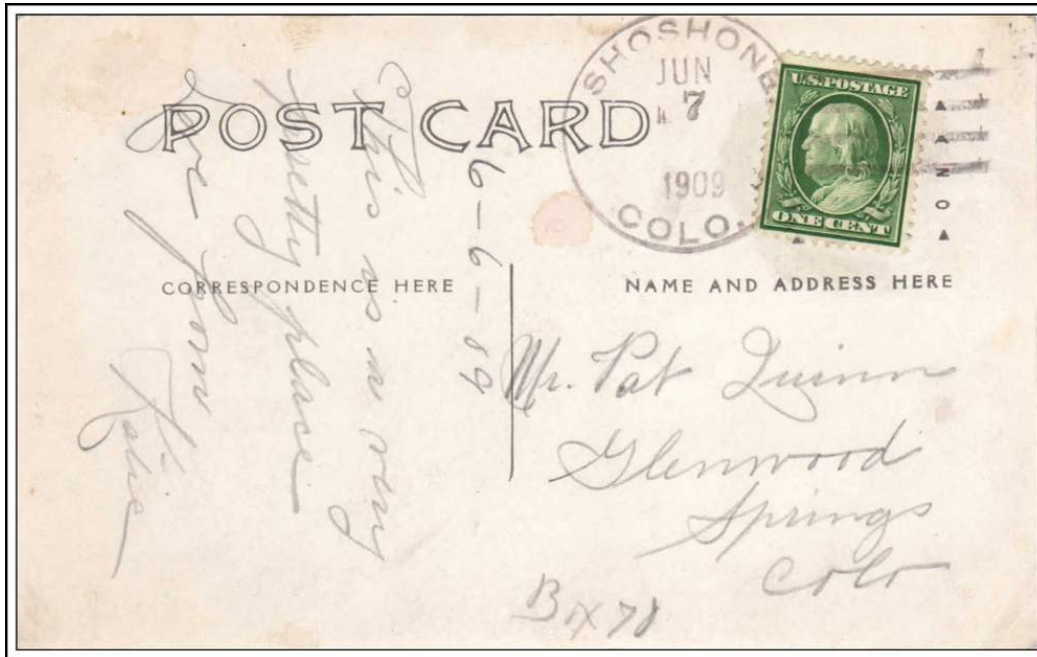 POST CARD
SHOSHONE
JUN
7
1909
COLO.
U.S. POSTAGE
ONE CENT
CORRESPONDENCE HERE
NAME AND ADDRESS HERE
6-6-09
This is a very
pretty place
Love from
Katie
Mr. Pat Quinn
Glenwood
Springs
Colo
Box 78